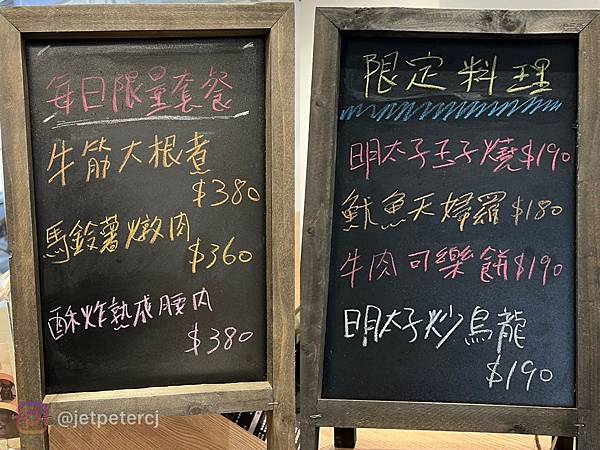 每日限量套餐
牛筋大根煮
$380
馬鈴薯燉肉
$360
酥炸熟成腰內
$380
限定料理
明太子玉子燒$190
魷魚天婦羅$180
牛肉可樂餅$190
明太子炒烏龍
$190
@jetpetercj